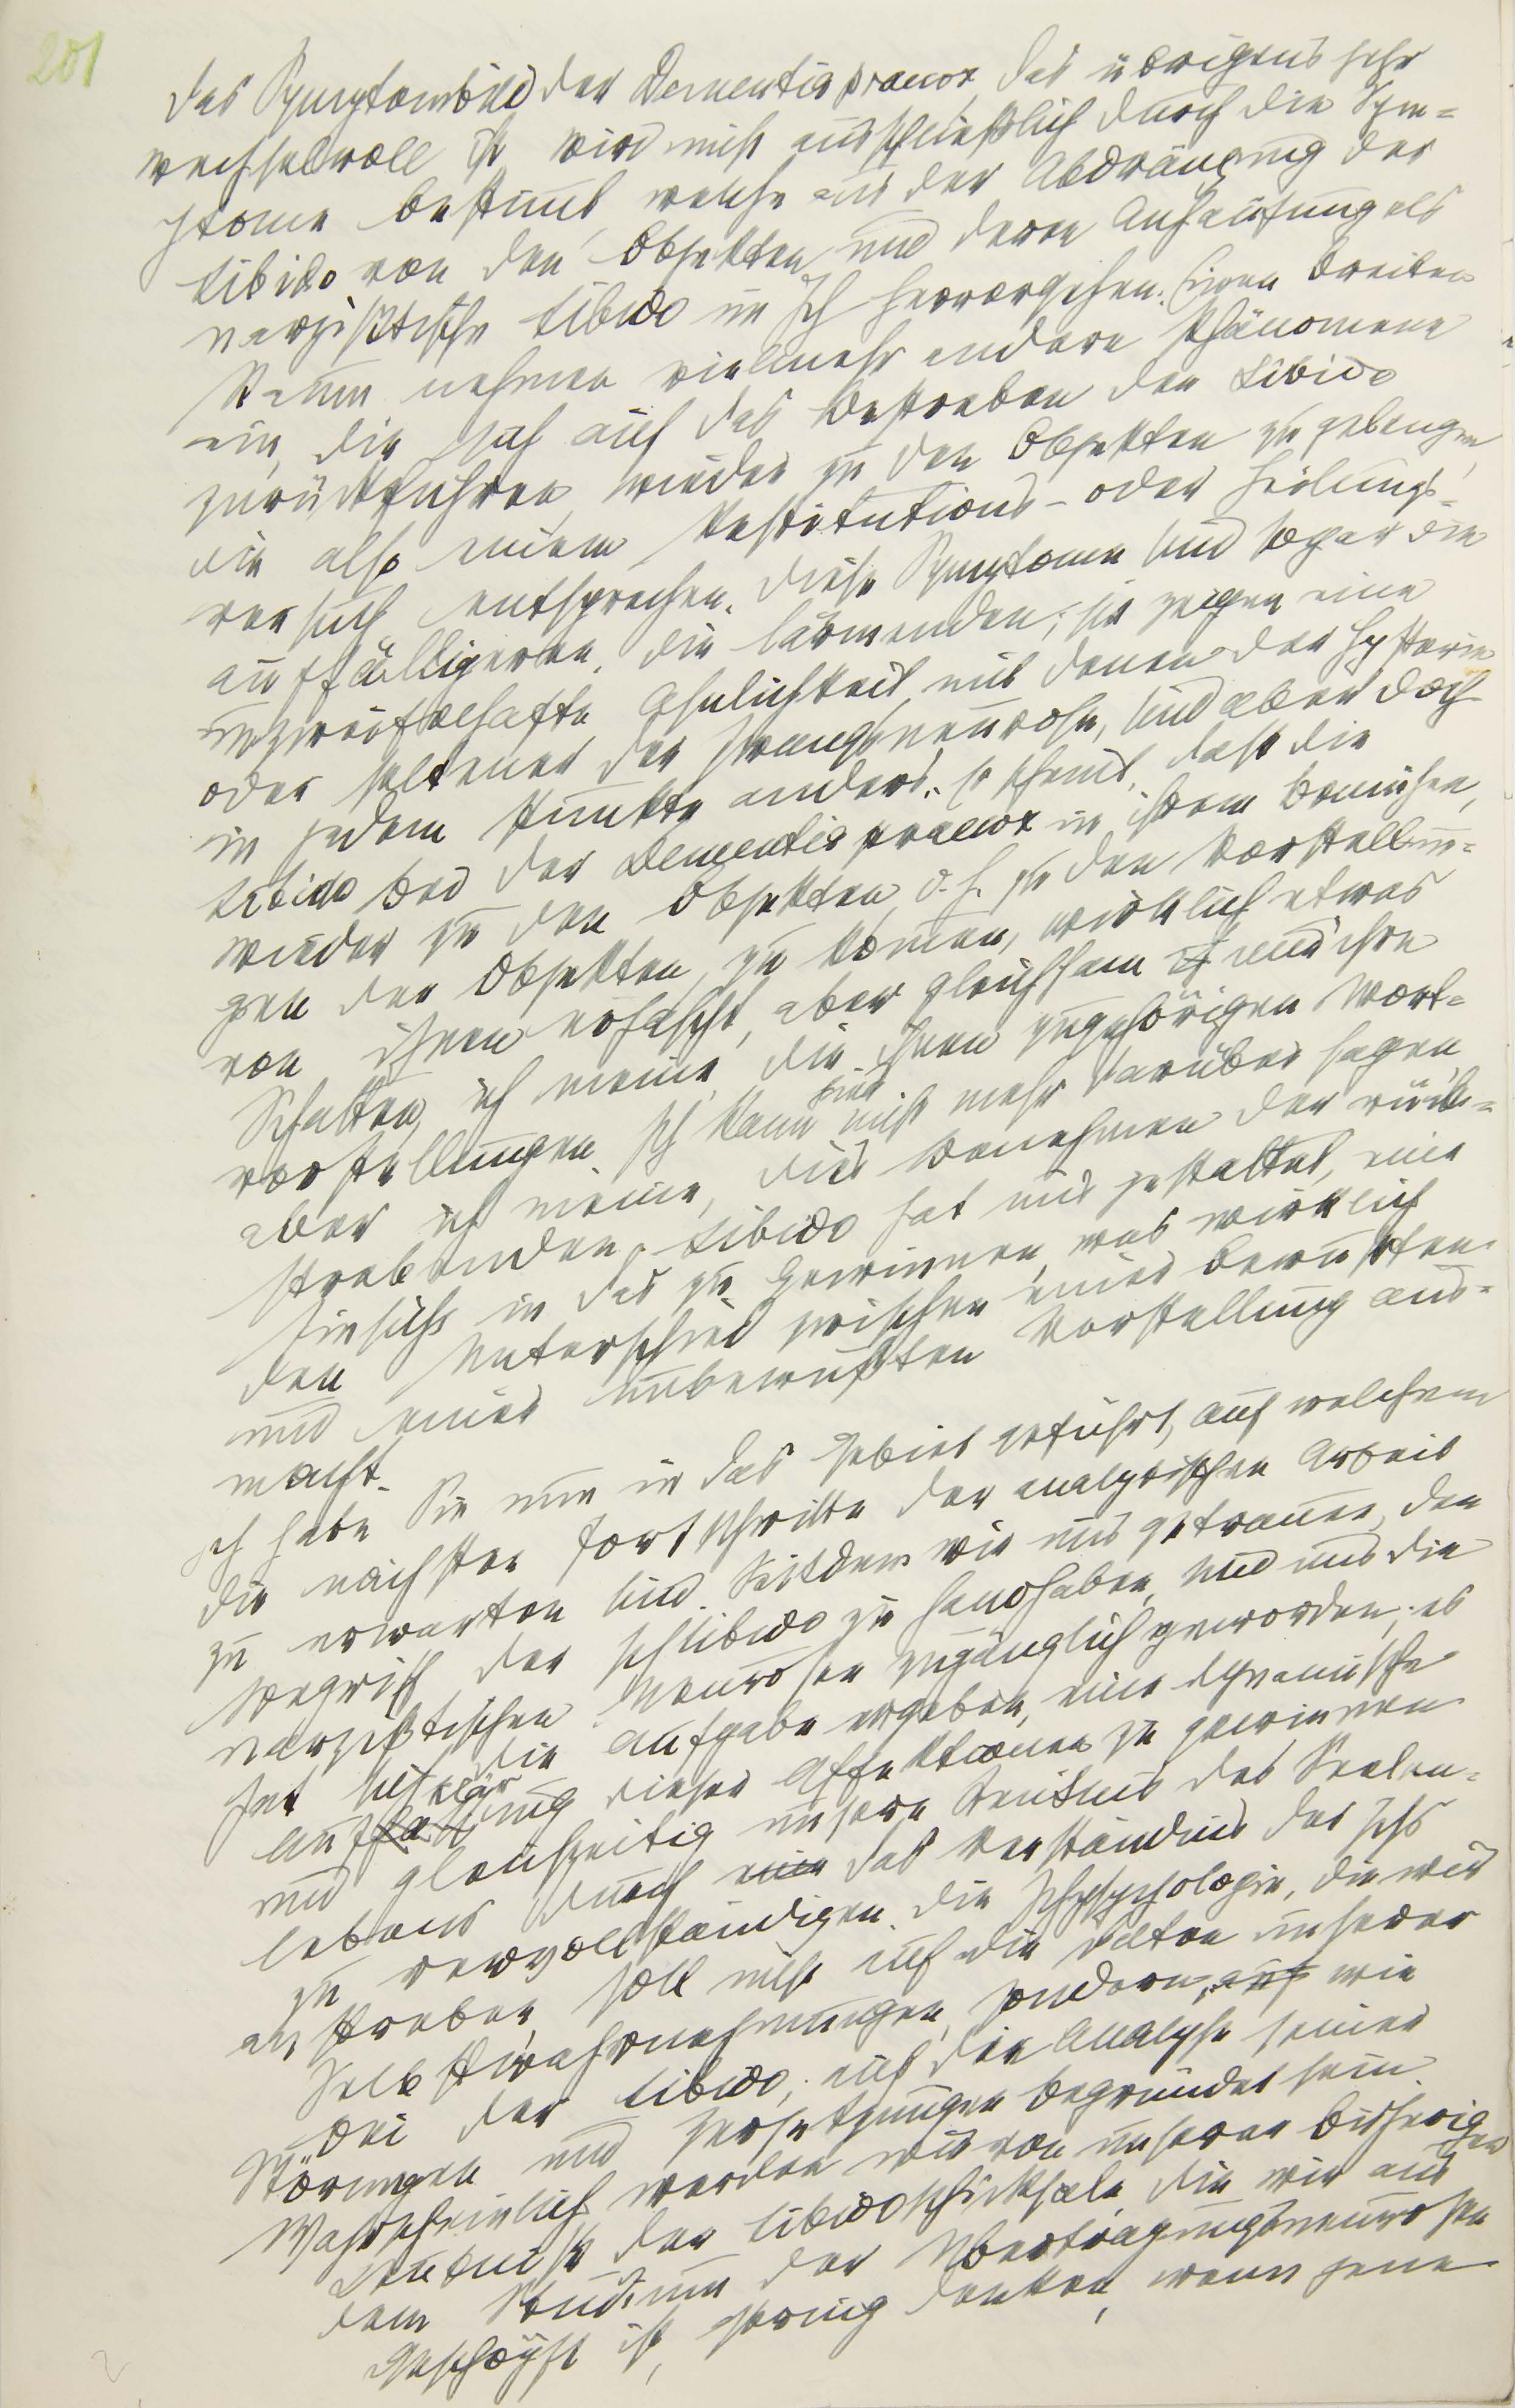 201
Das Symptombild der Dementia praecox, das übrigens sehr
wechselvoll ist, wird nicht ausschließlich durch die Sym=
ptome bestimmt, welche aus der Abdrängung der
Libido von den Objekten und deren Anhäufung als
narzißtische Libido im Ich hervorgehen. Einen breiten
Raum nehmen vielmehr andere Phänomene
ein, die sich auf das Bestreben der Libido
zurückführen, wieder zu den Objekten zu gelangen,
die also einem Restitutions- oder Heilungs=
versuch entsprechen. Diese Symptome sind sogar die
auffälligeren, die lärmenden; sie zeigen eine
unzweifelhafte Ähnlichkeit mit denen der Hysterie
oder seltener der Zwangsneurose, sind aber doch
in jedem Punkte anders. Es scheint, daß die
Libido bei der Dementia praecox in ihrem Bemühen,
wieder zu den Objekten, d. h. zu den Vorstellun=
gen der Objekten, zu kommen, wirklich etwas
von ihnen erhascht, aber gleichsam nur ihre
Schatten, ich meine, die ihnen zugehörigen Wort=
vorstellungen. Ich kann hier nicht mehr darüber sagen,
aber ich meine, dies Benehmen der rück=
strebenden Libido hat uns gestattet, eine
Einsicht in das zu gewinnen, was wirklich
den Unterschied zwischen einer bewußten
und einer unbewußten Vorstellung aus=
macht.
Ich habe Sie nun in das Gebiet geführt, auf welchem
die nächsten Fortschritte der analytischen Arbeit
zu erwarten sind. Seitdem wir uns getrauen, den
Begriff der Ichlibido zu handhaben, sind uns die
narzißtischen Neurosen zugänglich geworden; es
hat sich die Aufgabe ergeben, eine dynamische
Aufklärung dieser Affektionen zu gewinnen
und gleichzeitig unsere Kenntnis des Seelen=
lebens durch eine das Verständnis des Ichs
zu vervollständigen. Die Ichpsychologie, die wir
anstreben, soll nicht auf die Daten unserer
Selbstwahrnehmungen, sondern, auf wie
bei der Libido, auf die Analyse seiner
Störungen und Zersetzungen begründet sein.
Wahrscheinlich werden wir von unserer bisherigen
Kenntnis der Libidoschicksale, die wir aus
dem Studium der Übertragungsneurosen
geschöpft ist, gering denken, wenn jene